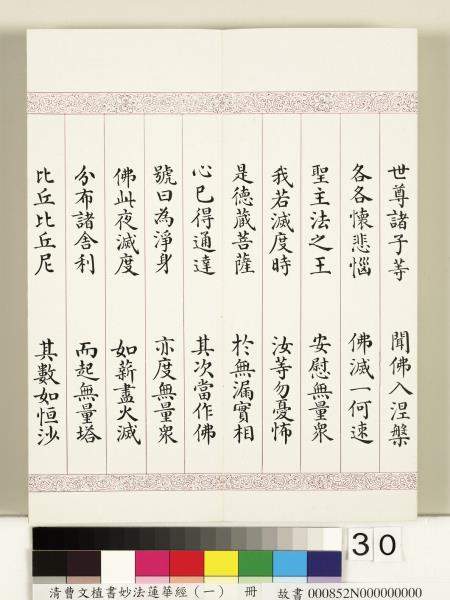 世尊諸子等　聞佛入涅槃
各各懷悲惱　佛滅一何速
聖主法之王　安慰無量衆
我若滅度時　汝等勿憂怖
是德藏菩薩　於無漏實相
心已得通達　其次當作佛
號曰為淨身　亦度無量衆
佛此夜滅度　如薪盡火滅
分布諸舍利　而起無量塔
比丘比丘尼　其數如恒沙
30
清曹文植書妙法蓮華經（一）　冊　故書 000852N000000000